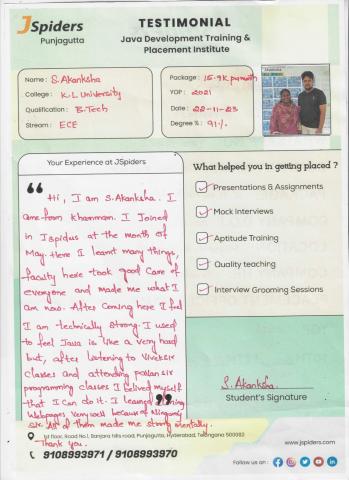 JSpiders
Punjagutta
TESTIMONIAL
Java Development Training &
Placement Institute
Name : S. Akanksha
College : K.L. University
Qualification : B.Tech
Stream : ECE
Package : 15-9K per month
YOP : 2021
Date : 22-11-23
Degree % : 91%
Your Experience at JSpiders
Hi, I am S. Akanksha. I
came from Khammam. I Joined
in Jspidus at the month of
May. Here I learnt many things,
faculty here took good care of
everyone and made me what I
am now. After Coming here I feel
I am technically strong. I used
to feel Java is like a very hard
but, after listening to Viveksir
classes and attending pavan sir
programming classes I belived myself
that I can do it. I learned
Webpages very well because of Ningaraj
sir. All of them made me strong mentally.
Thank you.
What helped you in getting placed ?
Presentations & Assignments
Mock Interviews
Aptitude Training
Quality teaching
Interview Grooming Sessions
S. Akanksha
Student's Signature
1st floor, Road No.1, Banjara hills road, Punjagutta, Hyderabad, Telangana 500082
9108993971 / 9108993970
www.jspiders.com
Follow us on :